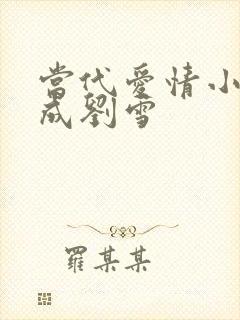 當代愛情小
成劉雪
羅某某